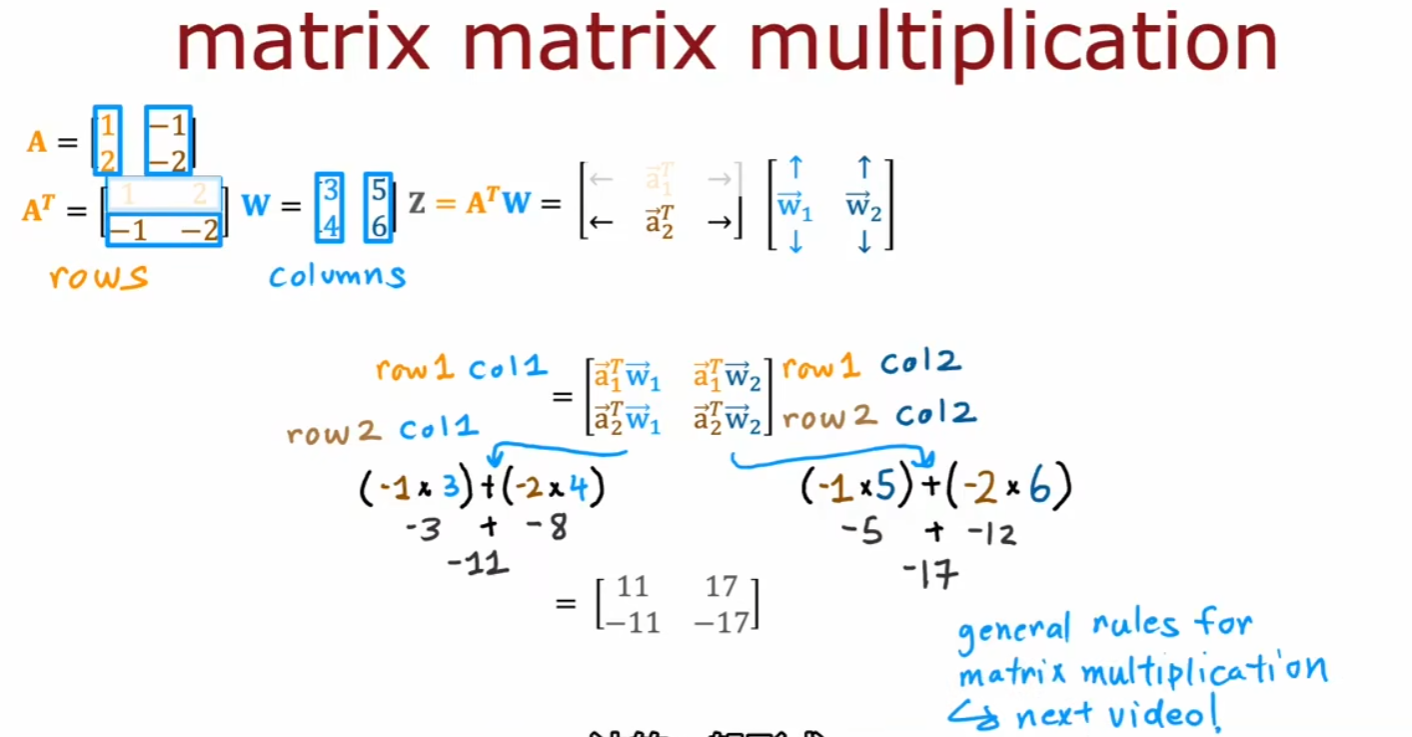 matrix matrix multiplication
A = [1 -1
2 -2]
Aᵀ = [1 2
-1 -2] W = [3 5
4 6] Z = AᵀW = [← a⃗₁ᵀ →
← a⃗₂ᵀ →] [↑ ↑
w⃗₁ w⃗₂
↓ ↓]
rows columns
row1 col1 = [a⃗₁ᵀw⃗₁ a⃗₁ᵀw⃗₂ row1 col2
row2 col1 a⃗₂ᵀw⃗₁ a⃗₂ᵀw⃗₂] row2 col2
(-1×3)+(-2×4) (-1×5)+(-2×6)
-3 + -8 -5 + -12
-11 -17
= [11 17
−11 −17]
general rules for
matrix multiplication
↳ next video!